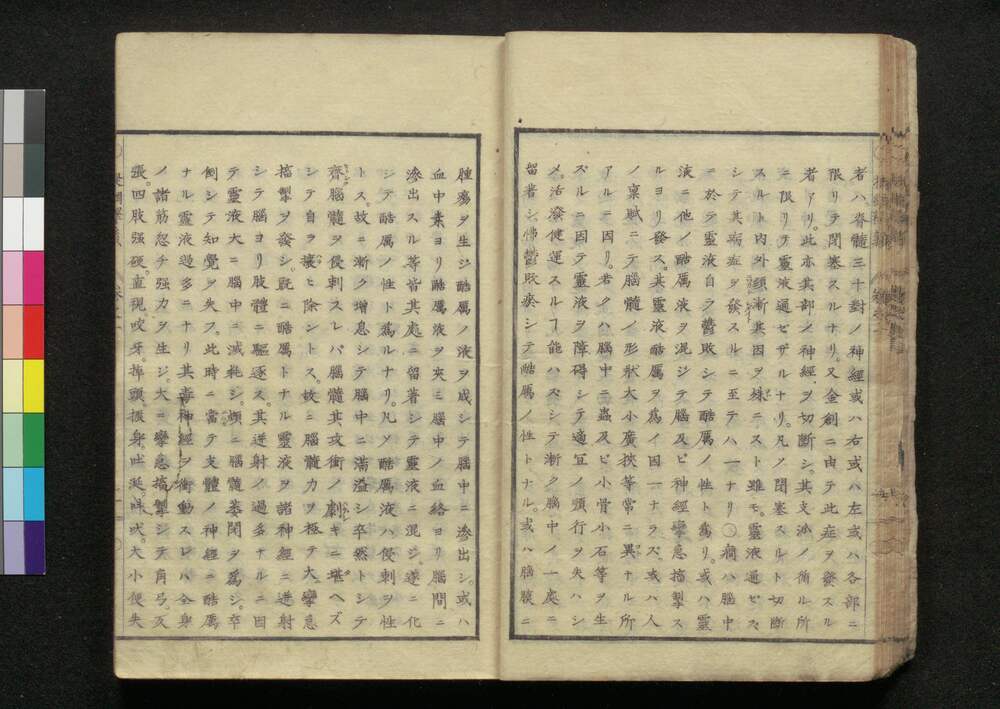 者ハ脊髓三十對ノ神經或ハ右或ハ左或ハ各部ニ
限リテ閉塞スルナリ。又金創ニ由テ此症ヲ發スル
者アリ。此亦其部ノ神經ヲ切斷シ其支派ノ循ル所
ニ限リテ靈液通ゼザルナリ。凡ノ閉塞スルト切斷
スルト内外頓漸其因ヲ殊ニスト雖モ。靈液通ビズ
シテ其病症ヲ發スルニ至テハ一ナリ○癇ハ腦中
ニ於テ靈液自ラ鬱敗シテ酷厲ノ性ト爲リ。或ハ靈
液ニ他ノ酷厲液ヲ混ジテ腦及ビ神經攣急搐掣ス
ルヨリ發ス。其靈液酷厲ヲ爲イ因一ナラズ。或ハ人
ノ禀賦ニテ腦髓ノ形狀大小廣挾等常ニ異ナル所
アルニ因リ。若クハ腦中ニ蟲及ビ小骨小石等ヲ生
ズルニ因テ靈液ヲ障碍シテ適宜ノ順行ヲ失ハシ
メ。活潑健運スルヿ能ハズシテ漸ク腦中ノ一處ニ
留着シ。怫鬱敗瘀シテ酷厲ノ性トナル。或ハ腦膜ニ
腫瘍ヲ生ジ酷厲ノ液ヲ成シテ腦中ニ滲出シ。或ハ
血中素ヨリ酷厲液ヲ夾ミ腦中ノ血絡ヨリ腦間ニ
滲出スル等皆其處ニ留着シテ靈液ニ混ジ。遂ニ化
ジテ酷厲ノ性ト爲ルナリ。凡ソ酷厲液ハ侵刺ヲ性
トス。故ニ漸ク增息シテ腦中ニ滿溢シ卒然トシテ
齊腦髓ヲ侵刺スレバ腦髓其攻衝ノ劇キニ堪ヘズ
シテ自ラ攘ヒ除ントス。故ニ腦髓力ヲ極テ大ニ攣急
搐掣ヲ發シ。既ニ酷厲トナル靈液ヲ諸神經ニ迸射
シテ腦ヨリ肢體ニ驅逐ス。其迸射ノ過多ナルニ因
テ靈液大ニ腦中ニ減耗シ。頓ニ腦髓萎閉ヲ爲シ。卒
倒シテ知覺ヲ失フ。此時ニ當テ支體ノ神經ニ酷厲
ナル靈液過多ニナリ其毒神經ヲ衝動スレバ全身
ノ諸筋怒チ强力ヲ生ジ。大ニ攣急搐掣シテ角弓。反
張。四肢强硬。直視咬牙。掉頭振身。吐涎。咔或大小便失